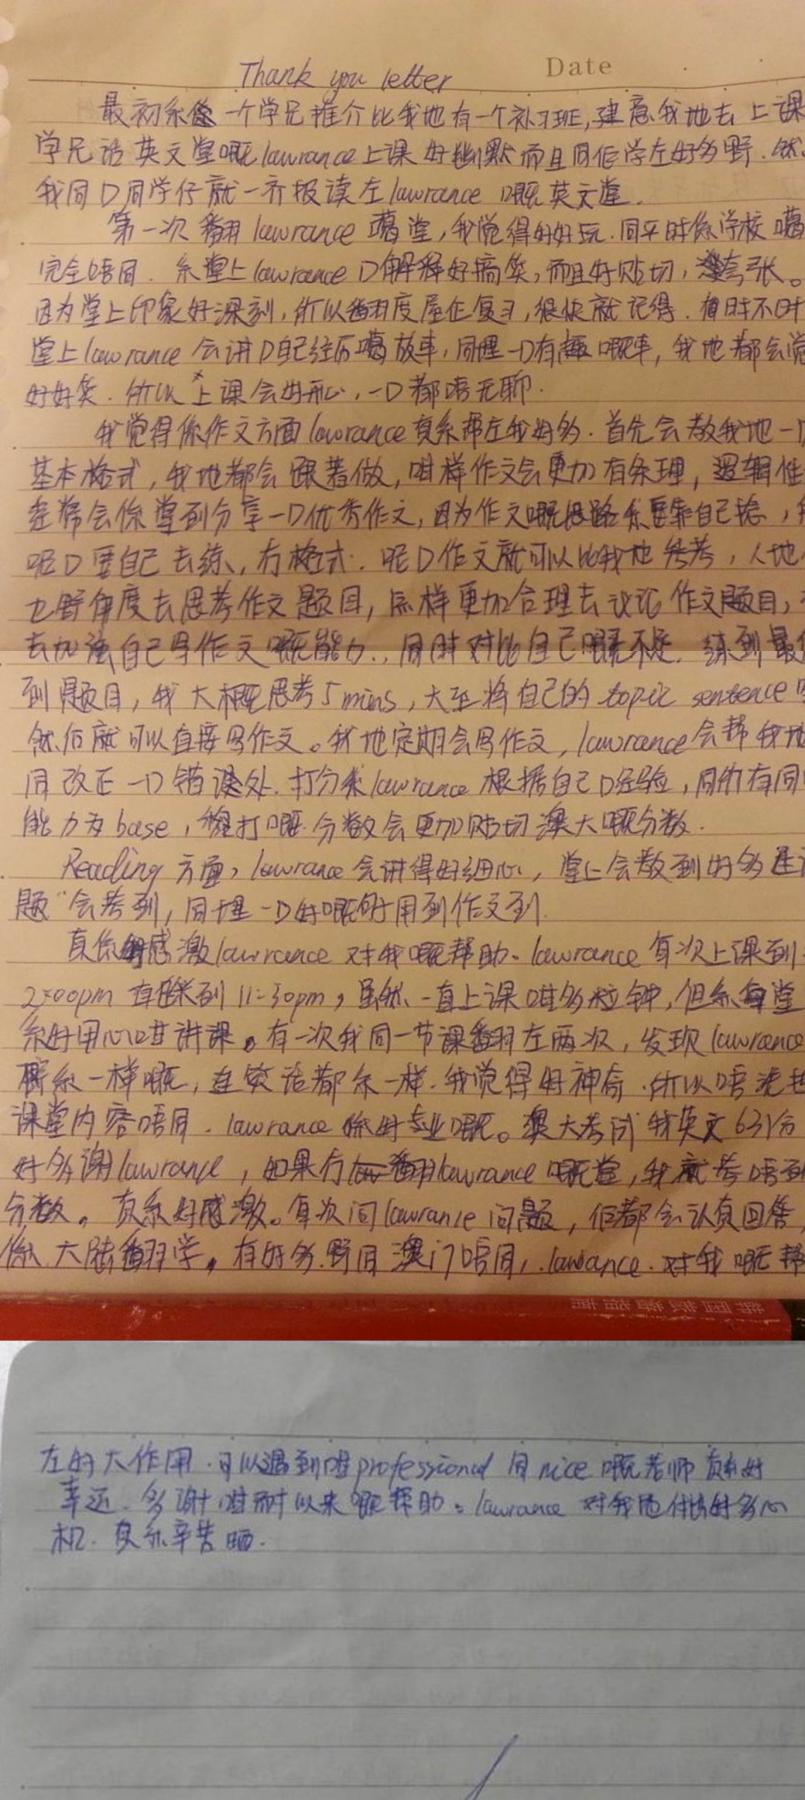 Thank you letter
Date
最初系 一个学兄推介比我地有一个补习班,建意我地去上课
学兄话英文堂嘅lawrance上课好幽默而且同佢学左好多野.然
我同D同学仔就一齐报读左lawrance嘅英文堂.
第一次翻lawrance 堂,我觉得好好玩.同平时系学校
完全唔同.系堂上lawrance D解释好搞笑,而且好贴切, 夸张。
因为堂上印象好深刻,所以翻度屋企复习,很快就记得.有时不时
堂上lawrance会讲D自己经历 故事,同埋一D有趣嘅事,我地都会觉
好好笑.所以上课会好开心,一D都唔无聊.
我觉得系作文方面lawrance真系帮左我好多.首先会教我地一
基本格式,我地都会跟着做,咁样作文会更加有条理,逻辑性
会系堂到分享一D优秀作文,因为作文嘅思路系要靠自己谂,
呢D要自己去练,冇格式.呢D作文就可以比我地参考,人地
乜野角度去思考作文题目,怎样更加合理去议论作文题目,
去加强自己写作文嘅能力.,同时对比自己嘅不足.练到最
到题目,我大概思考5mins,大至将自己的topic sentence
然后就可以直接写作文。我地定期会写作文,lawrance会帮我地
同改正一D错误处.打分系lawrance根据自己D经验,同所有同
能力为base,打嘅分数会更加贴切澳大嘅分数.
Reading方面,lawrance会讲得好细心,堂上会教到好多
题"会考到,同埋一D好嘅 用到作文到.
真系好感激lawrance对我嘅帮助。lawrance每次上课到
2:00pm 到11:30pm,虽然一直上课咁多粒钟,但系每堂
系好用心咁讲课。有一次我同一节课翻左两次,发现lawrance
系一样嘅,连笑话都系一样.我觉得好神奇.所以唔洗
课堂内容唔同.lawrance系好专业嘅。澳大考试我英文631分
好多谢lawrance,如果冇翻lawrance嘅堂,我就考唔到
分数。真系好感激。每次问lawrance问题,佢都会认真回答,
系大陆翻学。有好多野同澳门唔同,.lawrance.对我嘅帮
左好大作用.可以遇到咁professional同nice嘅老师真系好
幸运.多谢咁耐以来嘅帮助。lawrance对我地付出好多心
机.真系辛苦晒.